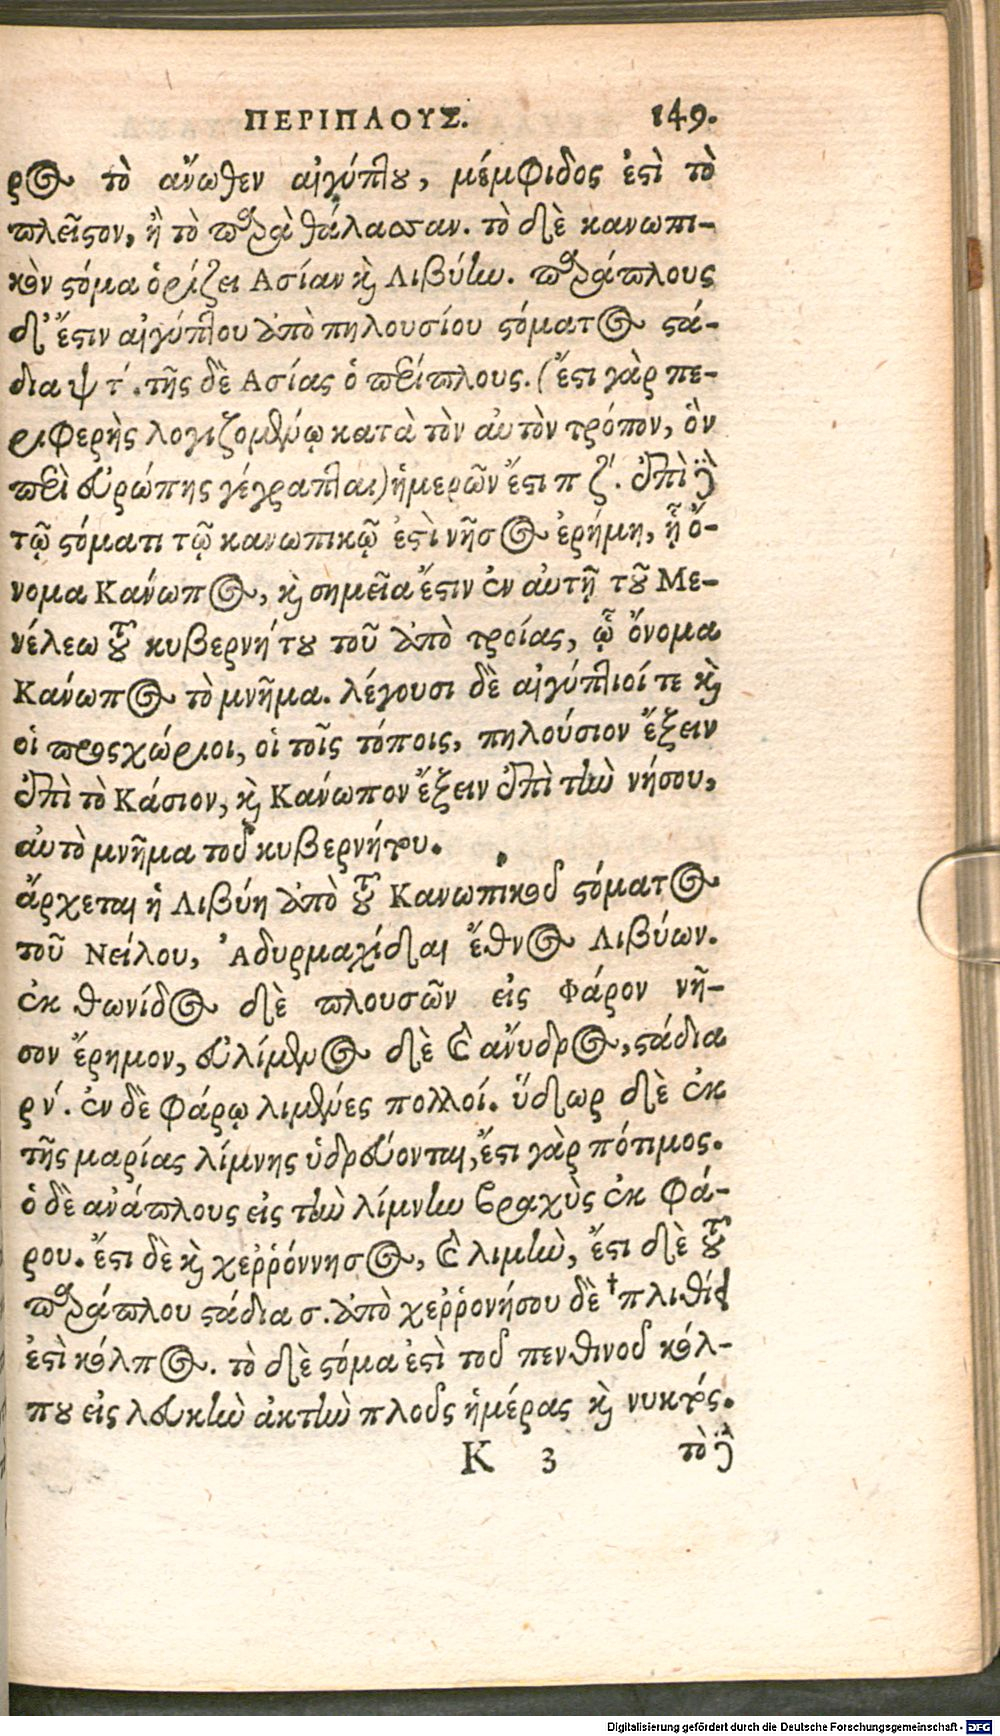 ΠΕΡΙΠΛΟΥΣ. 149.
ρος τὸ ἄνωθεν αἰγύπτου, μέμφιδος ἐστὶ τὸ
πλεῖστον, ἢ τὸ παρὰ θάλασσαν. τὸ δὲ κανωπι-
κὸν στόμα ὁρίζει Ασίαν καὶ Λιβύην. παράπλους
δ' ἔστιν αἰγύπτου ἀπὸ πηλουσίου στόματος στά-
δια ψ τ´. τῆς δὲ Ασίας ὁ περίπλους. (ἔστι γὰρ πε-
ριφερὴς λογιζομένῳ κατὰ τὸν αὐτὸν τρόπον, ὃν
περὶ εὐρώπης γέγραπται) ἡμερῶν ἔστι π ζ´. ἐπὶ δὲ
τῷ στόματι τῷ κανωπικῷ ἐστὶ νῆσος ἐρήμη, ᾗ ὄ-
νομα Κάνωπος, καὶ σημεῖα ἔστιν ἐν αὐτῇ τοῦ Με-
νέλεω τοῦ κυβερνήτου τοῦ ἀπὸ τροίας, ᾧ ὄνομα
Κάνωπος τὸ μνῆμα. λέγουσι δὲ αἰγύπτιοί τε καὶ
οἱ προσχώριοι, οἱ τοῖς τόποις, πηλούσιον ἕξειν
ἐπὶ τὸ Κάσιον, καὶ Κάνωπον ἕξειν ἐπὶ τὴν νήσου,
αὐτὸ μνῆμα τοῦ κυβερνήτου.
ἄρχεται ἡ Λιβύη ἀπὸ τοῦ Κανωπικοῦ στόματος
τοῦ Νείλου, Ἀδυρμαχίδαι ἔθνος Λιβύων.
ἐκ θωνίδος δὲ πλουσῶν εἰς Φάρον νῆ-
σον ἔρημον, εὐλίμενος δὲ καὶ ἄνυδρος, στάδια
ρν´. ἐν δὲ Φάρῳ λιμένες πολλοί. ὕδωρ δὲ ἐκ
τῆς μαρίας λίμνης ὑδρεύονται, ἔστι γὰρ πότιμος.
ὁ δὲ ἀνάπλους εἰς τὴν λίμνην βραχὺς ἐκ Φά-
ρου. ἔστι δὲ καὶ χεῤῥόννησος, καὶ λιμὴν, ἔστι δὲ τοῦ
παράπλου στάδια σ. ἀπὸ χεῤῥονήσου δὲ †πλιθίς
ἐστὶ κόλπος. τὸ δὲ στόμα ἐστὶ τοῦ πενθινοῦ κόλ-
που εἰς λευκὴν ἀκτὴν πλοῦς ἡμέρας καὶ νυκτός.
K 3 τὸ δὲ
Digitalisierung gefördert durch die Deutsche Forschungsgemeinschaft - DFG